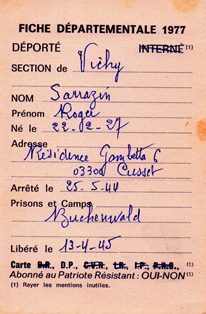 FICHE DÉPARTEMENTALE 1977
DÉPORTÉ INTERNÉ (1)
SECTION de Vichy
NOM Sarrazin
Prénom Roger
Né le 22-02-27
Adresse
Résidence Gambetta 6
03300 Cusset
Arrêté le 25-5-44
Prisons et Camps
Buchenwald
Libéré le 13-4-45
Carte D.R., D.P., C.V.R., I.R., I.P., P.R.O., (1)
Abonné au Patriote Résistant : OUI-NON (1)
(1) Rayer les mentions inutiles.